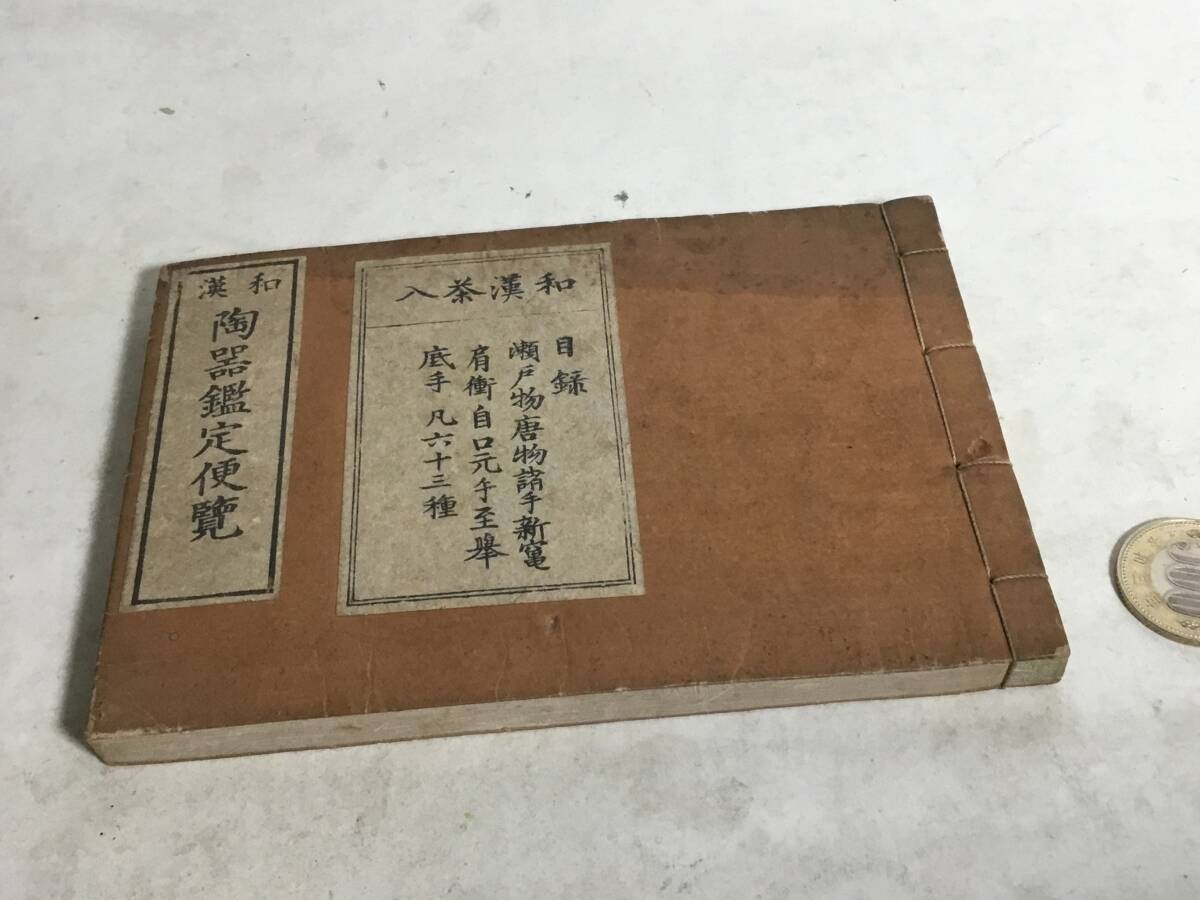 和漢
陶器鑑定便覽
和漢茶入
目録
瀬戸物唐物諸手新窯
肩衝自口元手至擧
底手凡六十三種
500